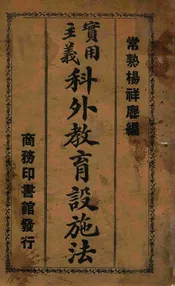 常熟楊祥麐編
實用主義
科外教育設施法
商務印書館發行